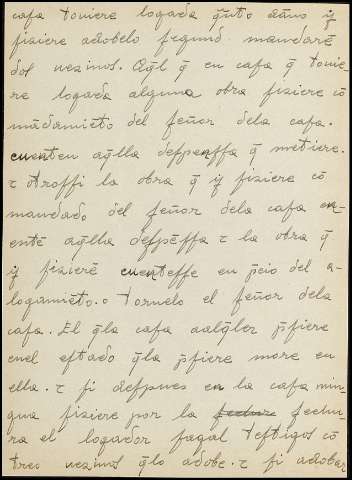 cafa toviere logada q̃nto dãno iy
fiziere adobelo ſegund. mandarẽ
dos vezinos. Aq̃l q̃ en caſa q̃ tovie-
re logada alguna obra fiziere cõ
mãdamiẽto del ſeñor dela caſa.
cuenten aq̃lla deſpenſſa q̃ metiere.
τ otroſſi la obra q̃ iy fiziere cõ
mandado del ſeñor dela caſa en-
entẽ aq̃lla deſpẽſſa τ la obra q̃
iy fizierẽ cuenteſſe en p̃cio del a-
logamiẽto. o tornelo el ſeñor dela
caſa. El q̃la caſa aalq̃ler p̃ſiere
enel eſtado q̃la p̃ſiere more en
ella. τ ſi deſpues en la caſa min-
gua fiziere por la fechur fechu-
ra el logador fagal teſtigos cõ
tres vezinos q̃lo adobe. τ ſi adobar